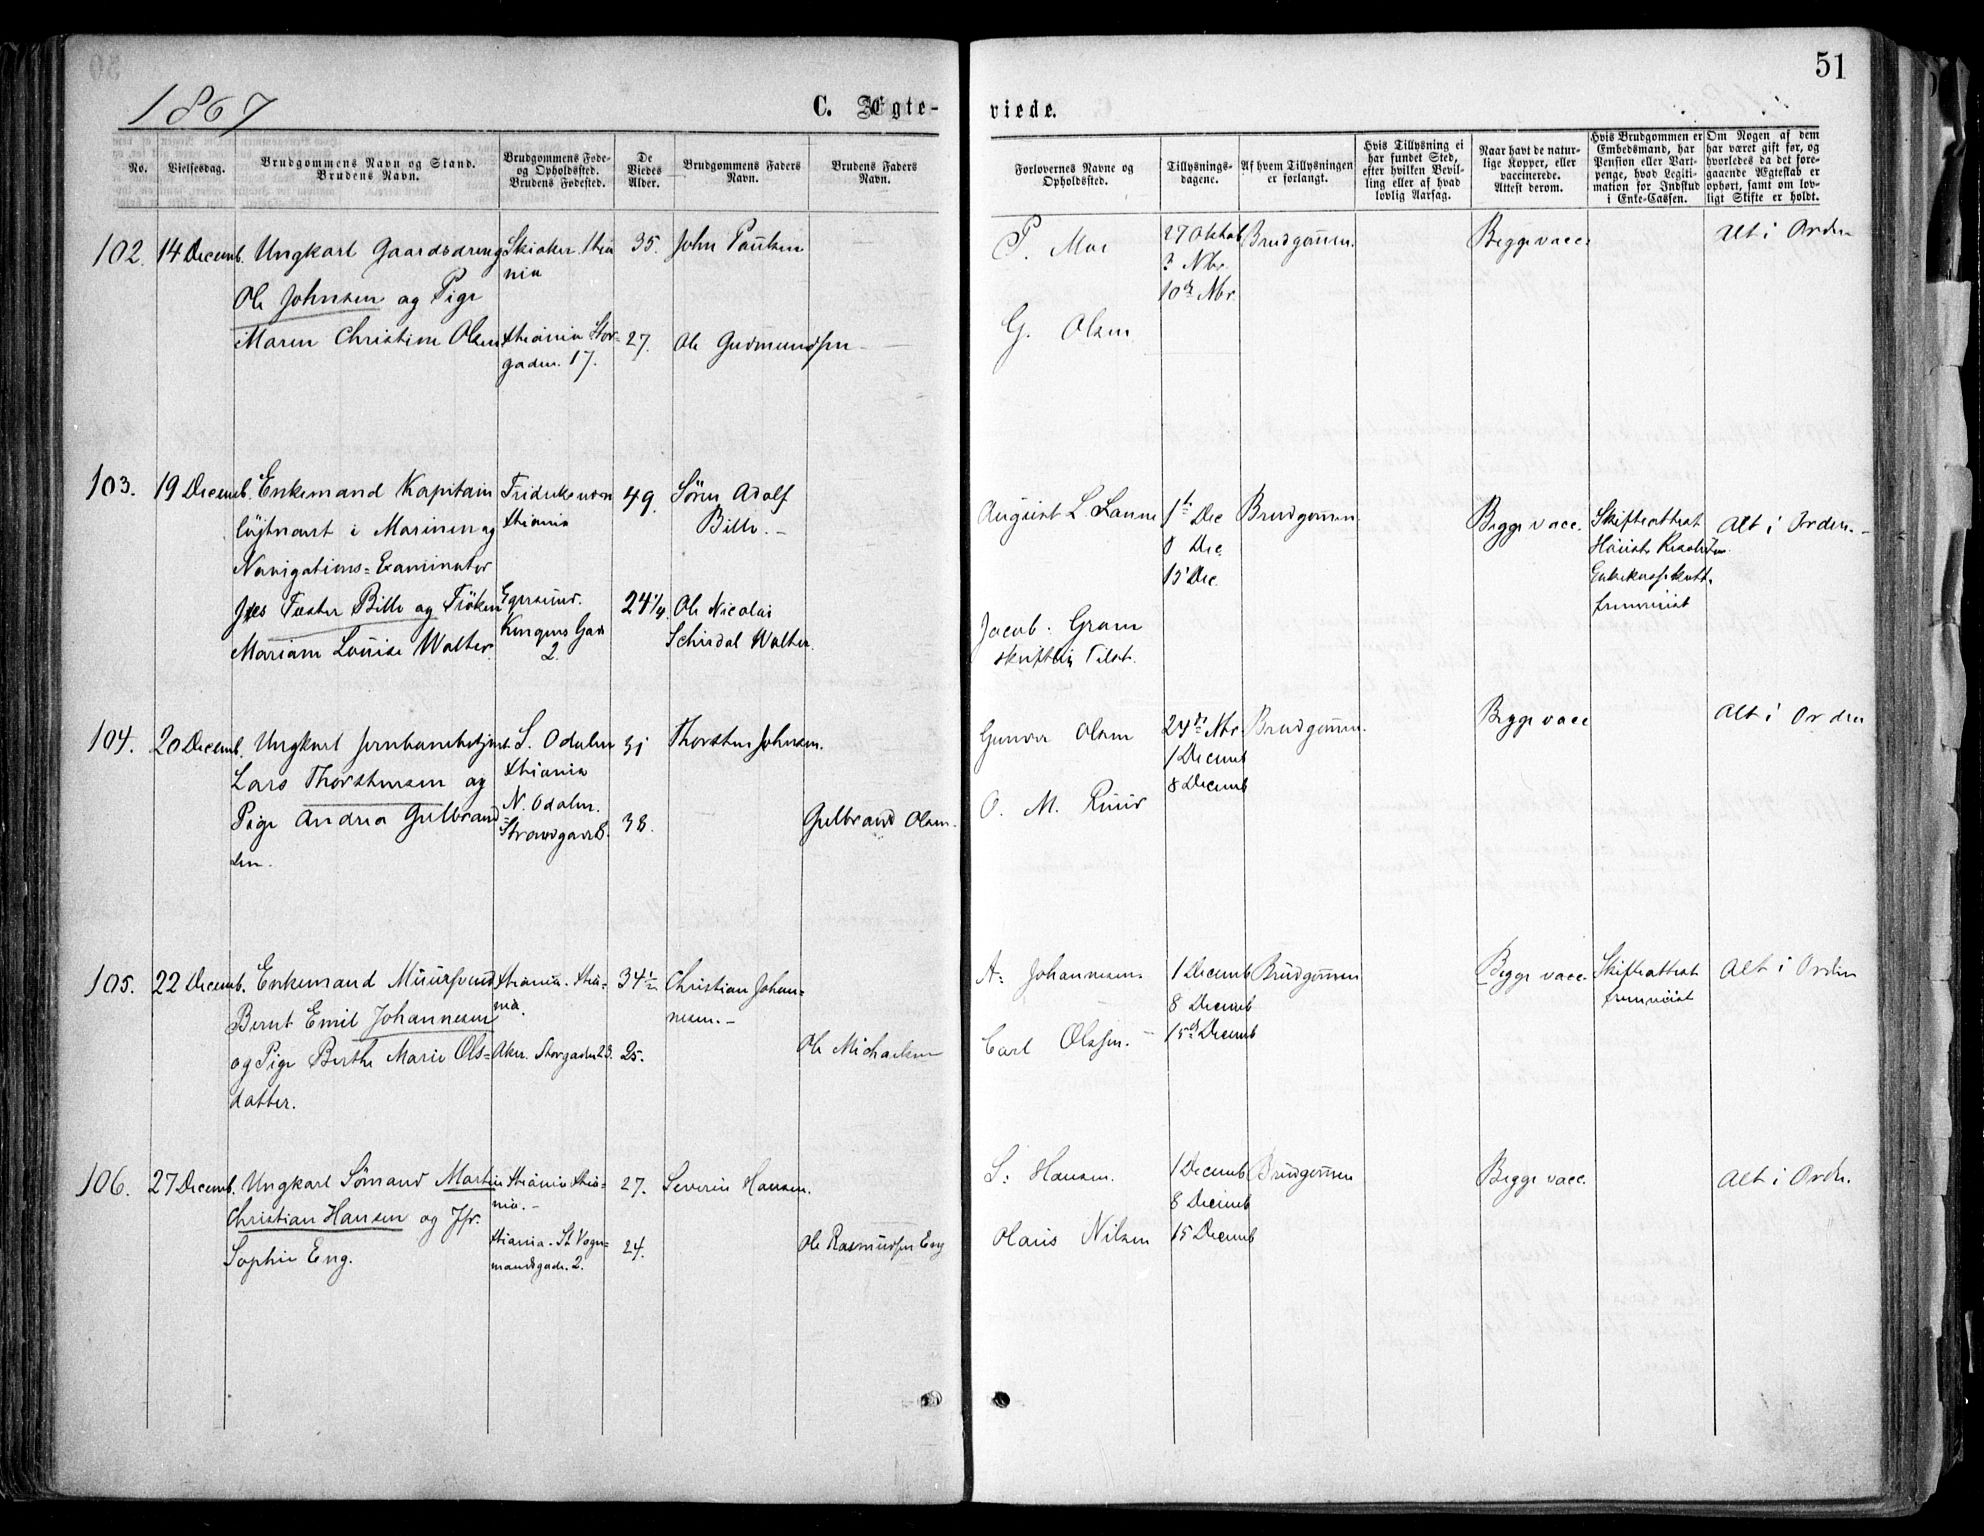 51
1867
C. Ægte-
viede.
No.
Vielsesdag.
Brudgommens Navn og Stand.
Brudens Navn.
Brudgommens Føde-
og Opholdssted.
Brudens Fødested.
De
Viedes
Alder.
Brudgommens Faders
Navn.
Brudens Faders
Navn.
Forlovernes Navne og
Opholdssted.
Tillysnings-
dagene.
Af hvem Tillysningen
er forlangt.
Hvis Tillysning ei
har fundet Sted,
efter hvilken Bevil-
ling eller af hvad
lovlig Aarsag.
Naar havt de natur-
lige Kopper, eller
vaccinerede.
Attest derom.
Hvis Brudgommen er
Embedsmand, har
Pension eller Vart-
penge, hvad Legiti-
mation for Indskud
i Enke-Cassen.
Om Nogen af dem
har været gift før, og
hvorledes da det fore-
gaaende Ægteskab er
ophørt, samt om lov-
ligt Skifte er holdt.
102. 14 Decemb. Ungkarl Gaardsdreng
Ole Johnsen og Pige
Maren Christine Olsen
Skiaker. Xtia
nia
Xtiania Stor-
gaden. 17.
35.
27.
John Paulsen
Ole Gudmundsen
P. Moe
G. Olsen
27 Oktob
3 Nbr.
10de Nbr.
Brudgommen.
Begge vacc.
Alt i Orden
103. 19 Decemb. Enkemand Kapitain
löjtnant i Marinen og
Navigations-Examinator
Jes Tuxter Bille og Fröken
Mariane Louise Walter.
Fridriksværn
Xtiania
Egersund.
Kongens Gad
2.
49.
24 1/4.
Sören Adolf
Bille.-
Ole Nicolai
Schiødal Walter.
August L Lanne
Jacob. Gram
skriftlig Tilst.
1te Dec
8 Dec.
15 Dec.
Brudgommen.
Begge vacc.
Skifteattest
fremviist
Alt i Orden.-
104. 20 Decemb. Ungkarl Jernbanebetjent
Lars Thorstensen og
Pige Andrea Gulbrand
sen.
S. Odalen
Xtiania
N. Odalen.
Strandgad 8.
31
38.
Thorsten Johnsen.
Gulbrand Olsen.
Gunder Olsen
O. M. Ruud
24de Nbr.
1 Decemb
8 Decemb
Brudgommen.
Begge vacc
Alt i Orden
105. 22 Decemb. Enkemand Muursvend
Bernt Emil Johannesen
og Pige Berthe Marie Ols-
datter.
Xtiania. Xtia-
nia.
Aker. Storgaden 23.
34 1/2
25.
Christian Johan-
nesen.-
Ole Michaelsen
A: Johannesen.
Carl Olssen.-
1 Decemb
8 Decemb
15de Decemb
Brudgommen
Begge vacc.
Skifteattest
fremviist
Alt i Orden
106. 27 Decemb. Ungkarl Sömand Martin
Christian Hansen og Jfr.
Sophie Eng.
Xtiania Xtia-
nia.-
Xtiania. St. Vogn-
mandsgade. 2.
27.
24.
Severin Hansen.
Ole Rasmudsen Eng
S: Hansen.
Olaus Nilsen
1 Decemb
8 Decemb
15 Decemb
Brudgommen
Begge vacc.
Alt i Orden.